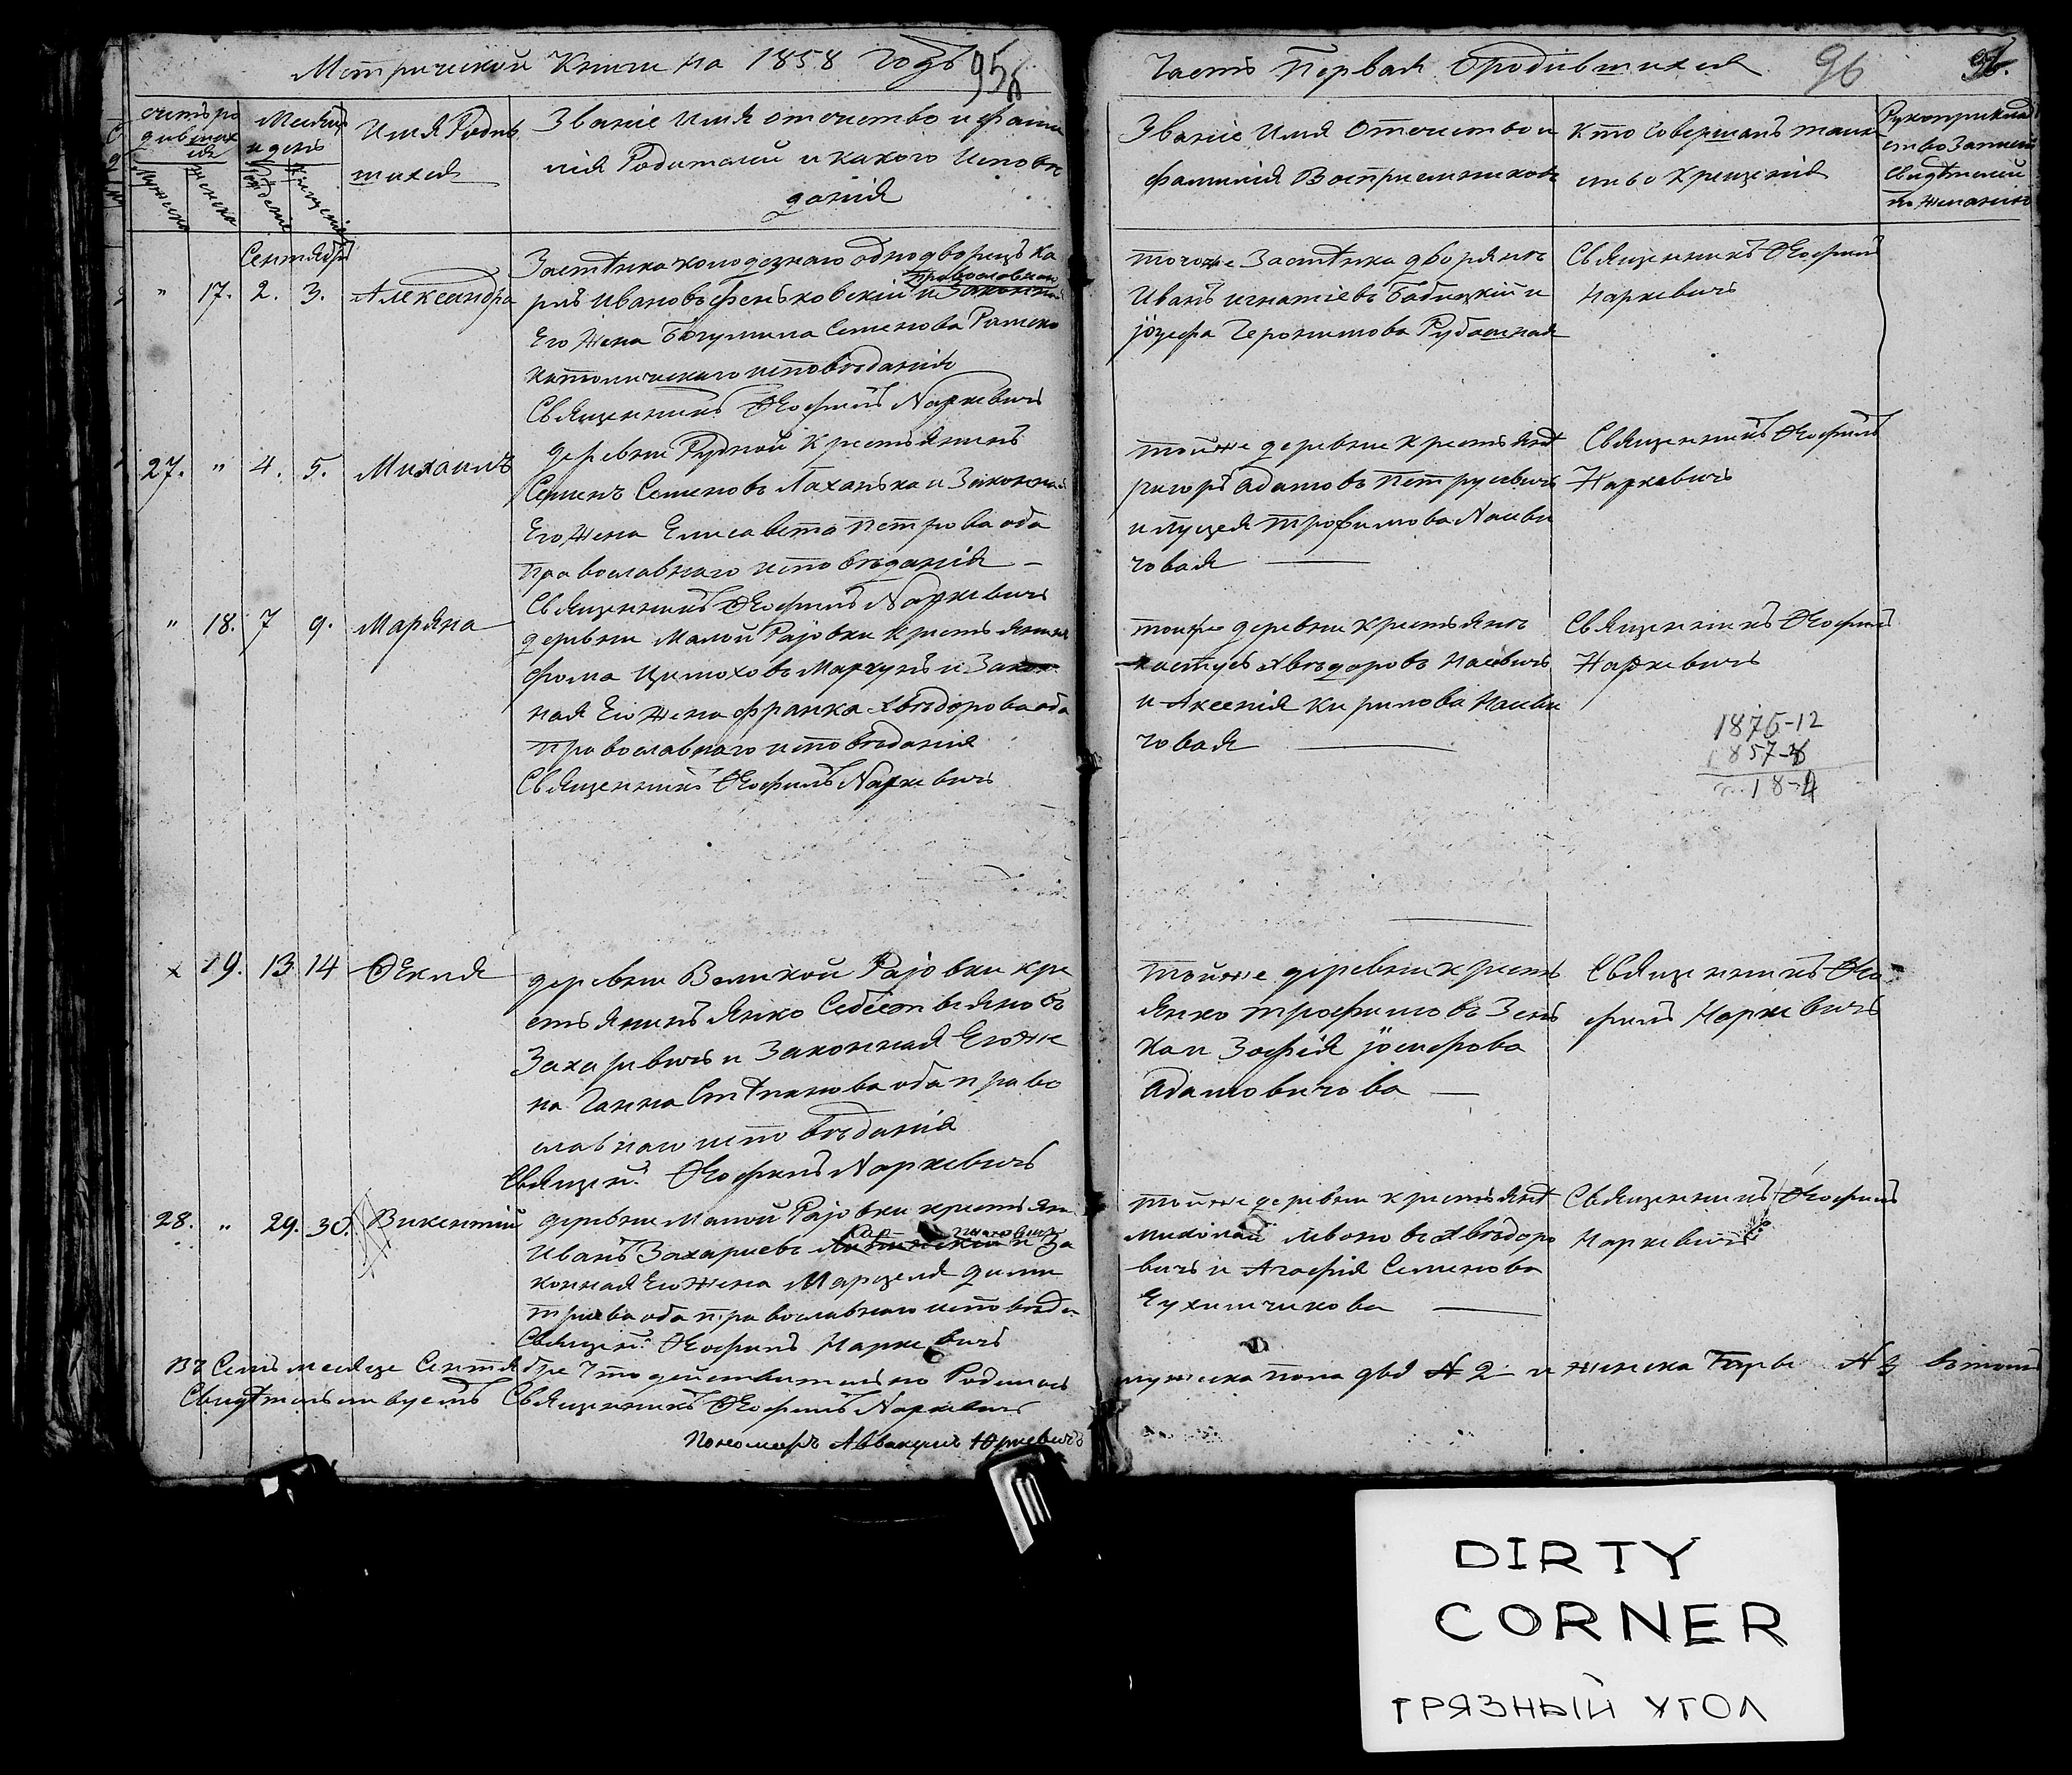 Метрической Книги на 1858 годъ
95
Часть Первая Ородившихся
96
счетъ ро
дивших
ся
Месяцъ
и день
Имя Родив
шихся
Званіе Имя отечество и фами
лія Родителей и какого Испове
данія
мужеска
женска
Рожденія
Крещенія
Званіе Имя Отечество и
фамилія Воспріемниковъ
Кто Совершалъ таин
ство Крещенія
Рукоприклад
ство Записей
Свидѣтелей
по желанію
Сентября
" 17. 2. 3. Александра
Застѣнка колодезнаго однодворецъ Ка
православнаго
рлъ Ивановъ Феньковскій и Законная
Его Жена Богумила Семенова Римско
католическаго исповѣданія
Священникъ Ѳеофилъ Наркевичъ
тогоже Застѣнка дворянъ
Иванъ игнатіевъ Бобицкій и
Іозефа Геронимова Рубаская
Священникъ Ѳеофилъ
Наркевичъ
27. " 4. 5. Михаилъ
деревни Рудной Крестьянинъ
Семенъ Семеновъ Лаханька и Законная
Его Жена Елисавета Петрова оба
православнаго исповѣданія
Священникъ Ѳеофилъ Наркевичъ
тойже деревни крестьянъ
григорь Адамовъ Петрусевичъ
и луцея трофимова
човая
Священникъ Ѳеофилъ
Наркевичъ
" 18. 7 9. Маряна
деревни Малой Раіовки крестьянинъ
фома Цимоховъ Марчукъ и Закон
ная Его Жена франка Хвѣдорова оба
православнаго исповѣданія
Священникъ Ѳеофилъ Наркевичъ
тойже деревни крестьянъ
кастусь Хвѣдоровъ
и Аксенія Кирилова
човая
Священникъ Ѳеофилъ
Наркевичъ
1876-12
1857-8
18-4
19. 13 14 Ѳекля
деревни Великой Раіовки кре
стьянинъ Янко Себестьяновъ
Захаревичъ и Законная Его Же
на Ганна Стѣпанова оба право
славнаго исповѣданія
Священ. Ѳеофилъ Наркевичъ
тойже деревни крестъ
Янко трофимовъ Зень
ка и Зофія Іосифова
Адамовичова
Священникъ Ѳео
филъ Наркевичъ
28. " 29. 30. Викентій
деревни Малой Раіовки крестьян
Иванъ Захариевъ и За
конная Его Жена Марцеля дими
трыева оба православнаго исповѣда
Священ. Ѳеофилъ Наркевичъ
тойже деревни крестьянъ
михолай ивановъ Хвѣдоро
вичъ и Агафія Семенова
Еухимчикова
Священникъ Ѳеофилъ
Наркевичъ
Въ Семъ месяце Сентябре Что действительно Родилось
мужеска пола два № 2 и женска Тары № 3 втомъ
Свидѣтельствуетъ Священникъ Ѳеофилъ Наркевичъ
Пономаръ Аввакумъ Юркевичъ
DIRTY
CORNER
ГРЯЗНЫЙ УГОЛ